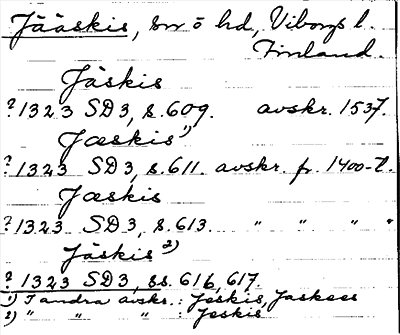 Jääskis, sn o hd, Viborgs l.
Finland.
Jäskis
? 1323 SD 3, s. 609. avskr. 1537.
Jæskis 1)
? 1323 SD 3, s. 611. avskr. fr. 1400-t.
Jæskis
? 1323 SD 3, s. 613. " " " "
Jäskis 2)
? 1323 SD 3, ss. 616, 617.
1) I andra avskr.: Jeskis, Jaskees
2) " " " : Jeskis